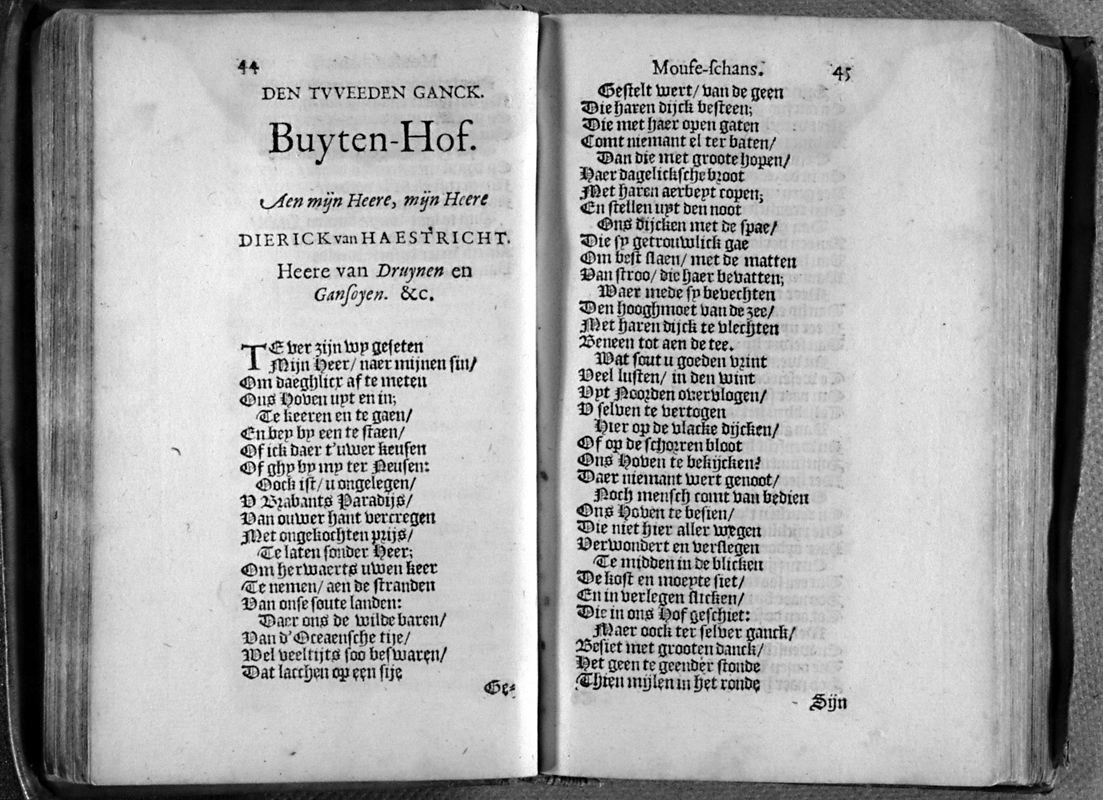 44
DEN TVVEEDEN GANCK.
Buyten-Hof.
Aen mijn Heere, mijn Heere
DIERICK van HAESTRICHT.
Heere van Druynen en
Gansoyen. &c.
TE ver zijn wy geseten
Mijn Heer/ naer mijnen sin/
Om daeghlicx af te meten
Ons Hoven uyt en in;
Te keeren en te gaen/
En bey by een te staen/
Of ick daer t'uwer keusen
Of ghy by my ter Neusen:
Oock ist/ u ongelegen/
V Brabants Paradijs/
Van ouwer hant vercregen
Met ongekochten prijs/
Te laten sonder Heer;
Om herwaerts uwen keer
Te nemen/ aen de stranden
Van onse soute landen:
Daer ons de wilde baren/
Van d'Oceaensche tije/
Wel veeltijts soo beswaren/
Dat lacchen op een sije
Ge-
Mouse-schans.
45
Gestelt wert/ van de geen
Die haren dijck besteen;
Die met haer open gaten
Comt niemant el ter baten/
Dan die met groote hopen/
Haer dagelicksche broot
Met haren aerbeyt copen;
En stellen uyt den noot
Ons dijcken met de spae/
Die sy getrouwlick gae
Om best slaen/ met de matten
Van stroo/ die haer bevatten;
Waer mede sy bevechten
Den hooghmoet van de zee/
Met haren dijck te vlechten
Beneen tot aen de tee.
Wat sout u goeden vrint
Veel lusten/ in den wint
Uyt Noorden overvlogen/
V selven te vertogen
Hier op de vlacke dijcken/
Of op de schorren bloot
Ons Hoven te bekijcken?
Daer niemant wert genoot/
Noch mensch comt van bedien
Ons Hoven te besien/
Die niet hier aller wegen
Verwondert en verslegen
Te midden in de blicken
De kost en moeyte siet/
En in verlegen slicken/
Die in ons Hof geschiet:
Maer oock ter selver ganck/
Besiet met grooten danck/
Het geen te geender stonde
Thien mijlen in het ronde
Sijn